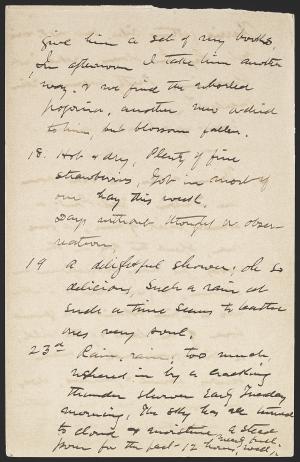 give him a set of my books,
In afternoon I take him another
way, & we find the whorled
pogonia, another new orchid
to him, but blossom fallen.
18. Hot & dry, Plenty of fine
strawberries, Got in most of
our hay this week.
Days without thought or obser-
vation.
19 A delightful shower; oh so
delicious, Such a rain at
such a time seems to bathe
ones very soul.
23d Rain, rain, too much,
ushered in by a cracking
thunder shower early Tuesday
morning, The sky has all turned
to cloud & moisture, a steady
pour for the past 12 hours,